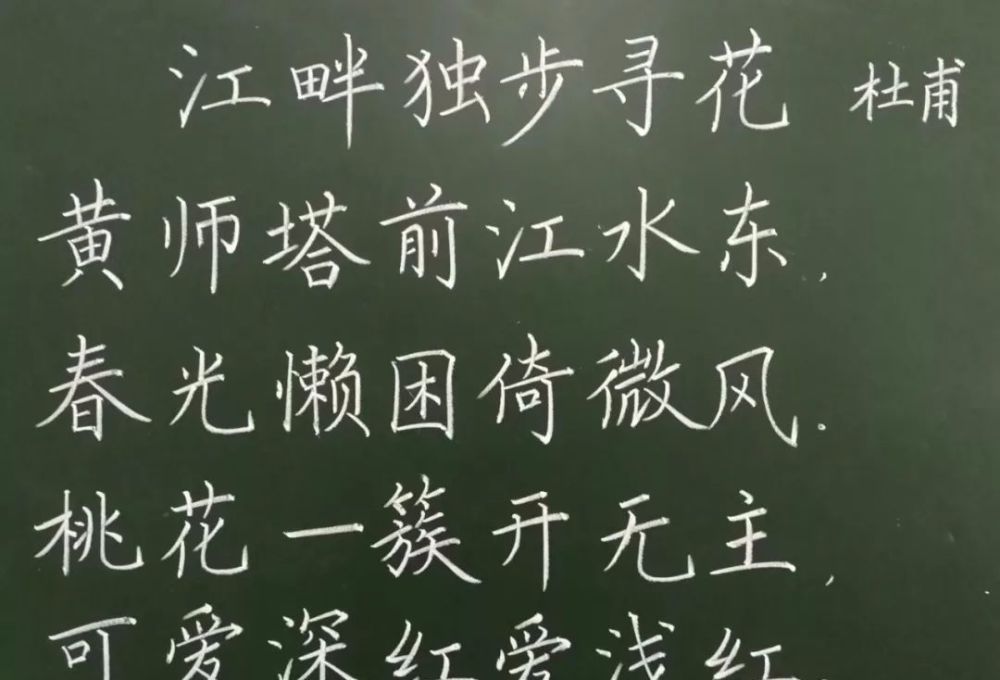 江畔独步寻花 杜甫
黄师塔前江水东,
春光懒困倚微风.
桃花一簇开无主,
可爱深红爱浅红.